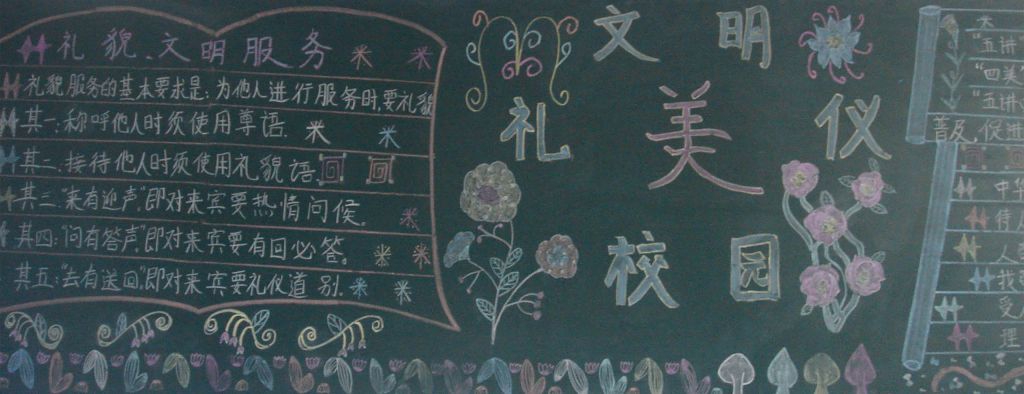 礼貌、文明服务
礼貌服务的基本要求是:为他人进行服务时,要礼貌
其一:称呼他人时须使用尊语.
其二:接待他人时须使用礼貌语.
其三:"来有迎声",即对来宾要热情问候.
其四:"问有答声"即对来宾要有回必答。
其五:"去有送回,即对来宾要礼仪道别.
文明
礼美仪
校园
"五讲
"四美
"五讲
普及,促进
中华
待人
人
我
受人
理